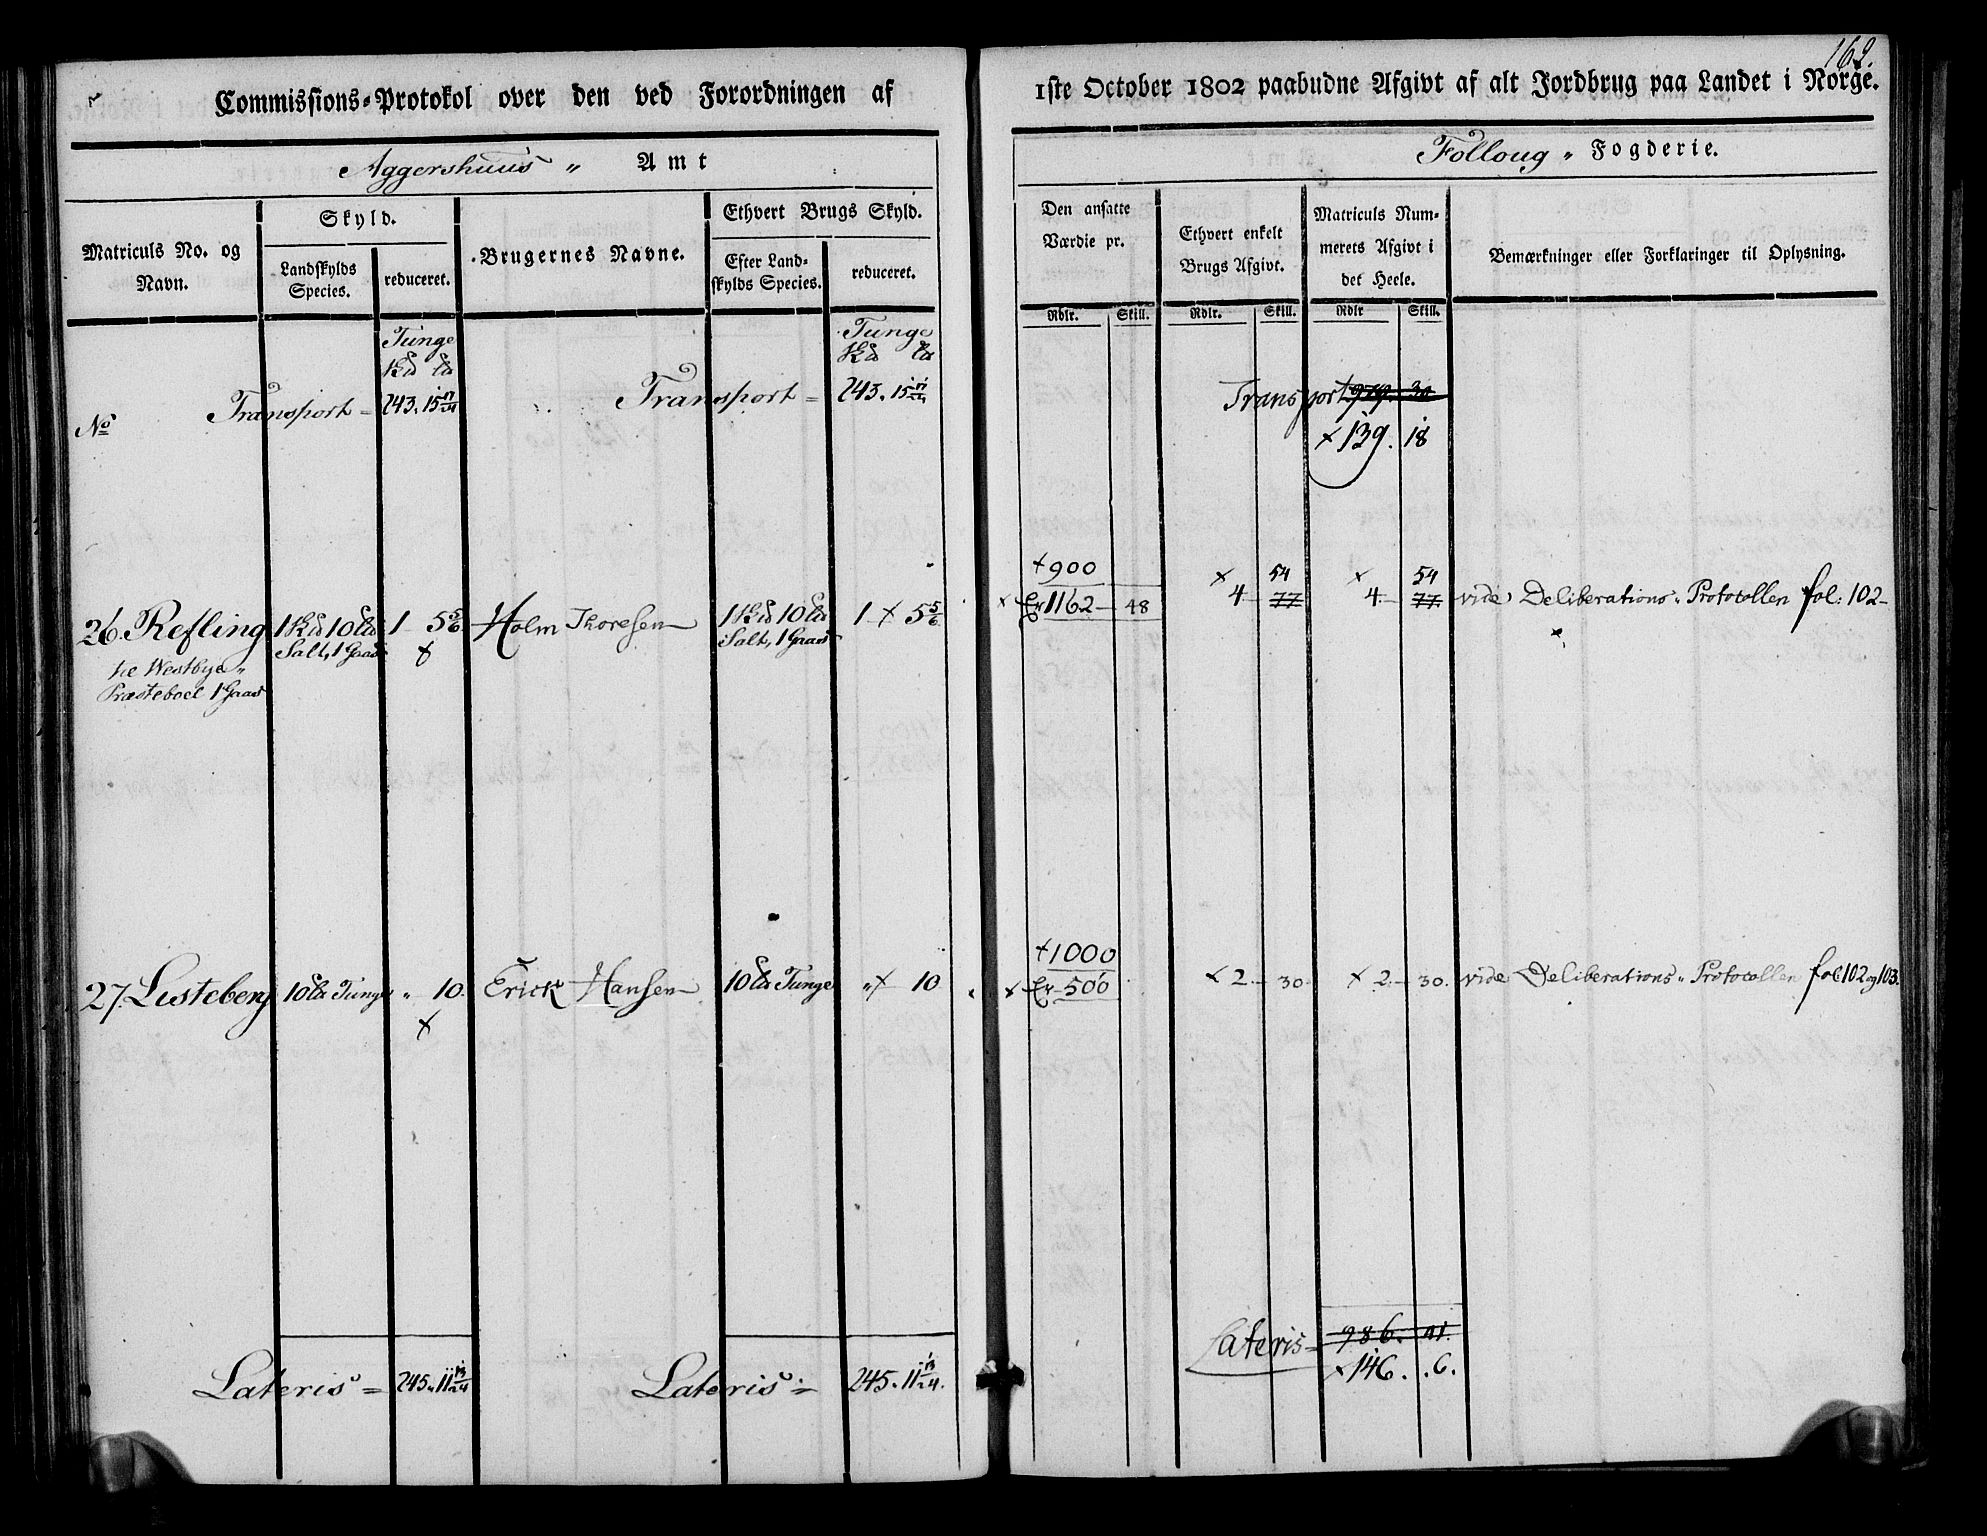 162.
Commissions-Protokol over den ved Forordningen af 1ste October 1802 paabudne Afgivt af alt Jordbrug paa Landet i Norge.
Aggershuus „ Amt
Folloug „ Fogderie.
Matriculs No. og Navn.
Skyld.
Landskylds Species.
reduceret.
Brugernes Navne.
Ethvert Brugs Skyld.
Efter Landskylds Species.
reduceret.
Den ansatte Værdie pr.
Rdlr. Skill.
Ethvert enkelt Brugs Afgivt.
Rdlr. Skill.
Matriculs Nummerets Afgivt i det Heele.
Rdlr Skill.
Bemærkninger eller Forklaringer til Oplysning.
Tunge
Tunge
No Transport = 243. 15 17/24 Transport = 243. 15 17/24 Transport 979. 30
× 139. 18
+ 900 54 54
26. Refling 1 10 1 5 5/6 Holm Thoresen 1 10 1 × 5 5/6 × Er 1162 – 48 × 4 77 × 4 77 vide Deliberations„ Protocollen fol: 102
Salt, 1 Gaas Salt, 1 Gaas
te Westbye„
Præsteboel 1 Gaas
+ 1000
27. Listeberg 10 Tunge „ 10. Erick Hansen 10 Tunge „ × 10 × Er 500 × 2 – 30 × 2 – 30. vide Deliberations„ Protocollen fol 102 og 103.
Lateris = 986. 41.
Lateris = 245. 11 13/24 Lateris = 245. 11 13/24. × 146. . 6.